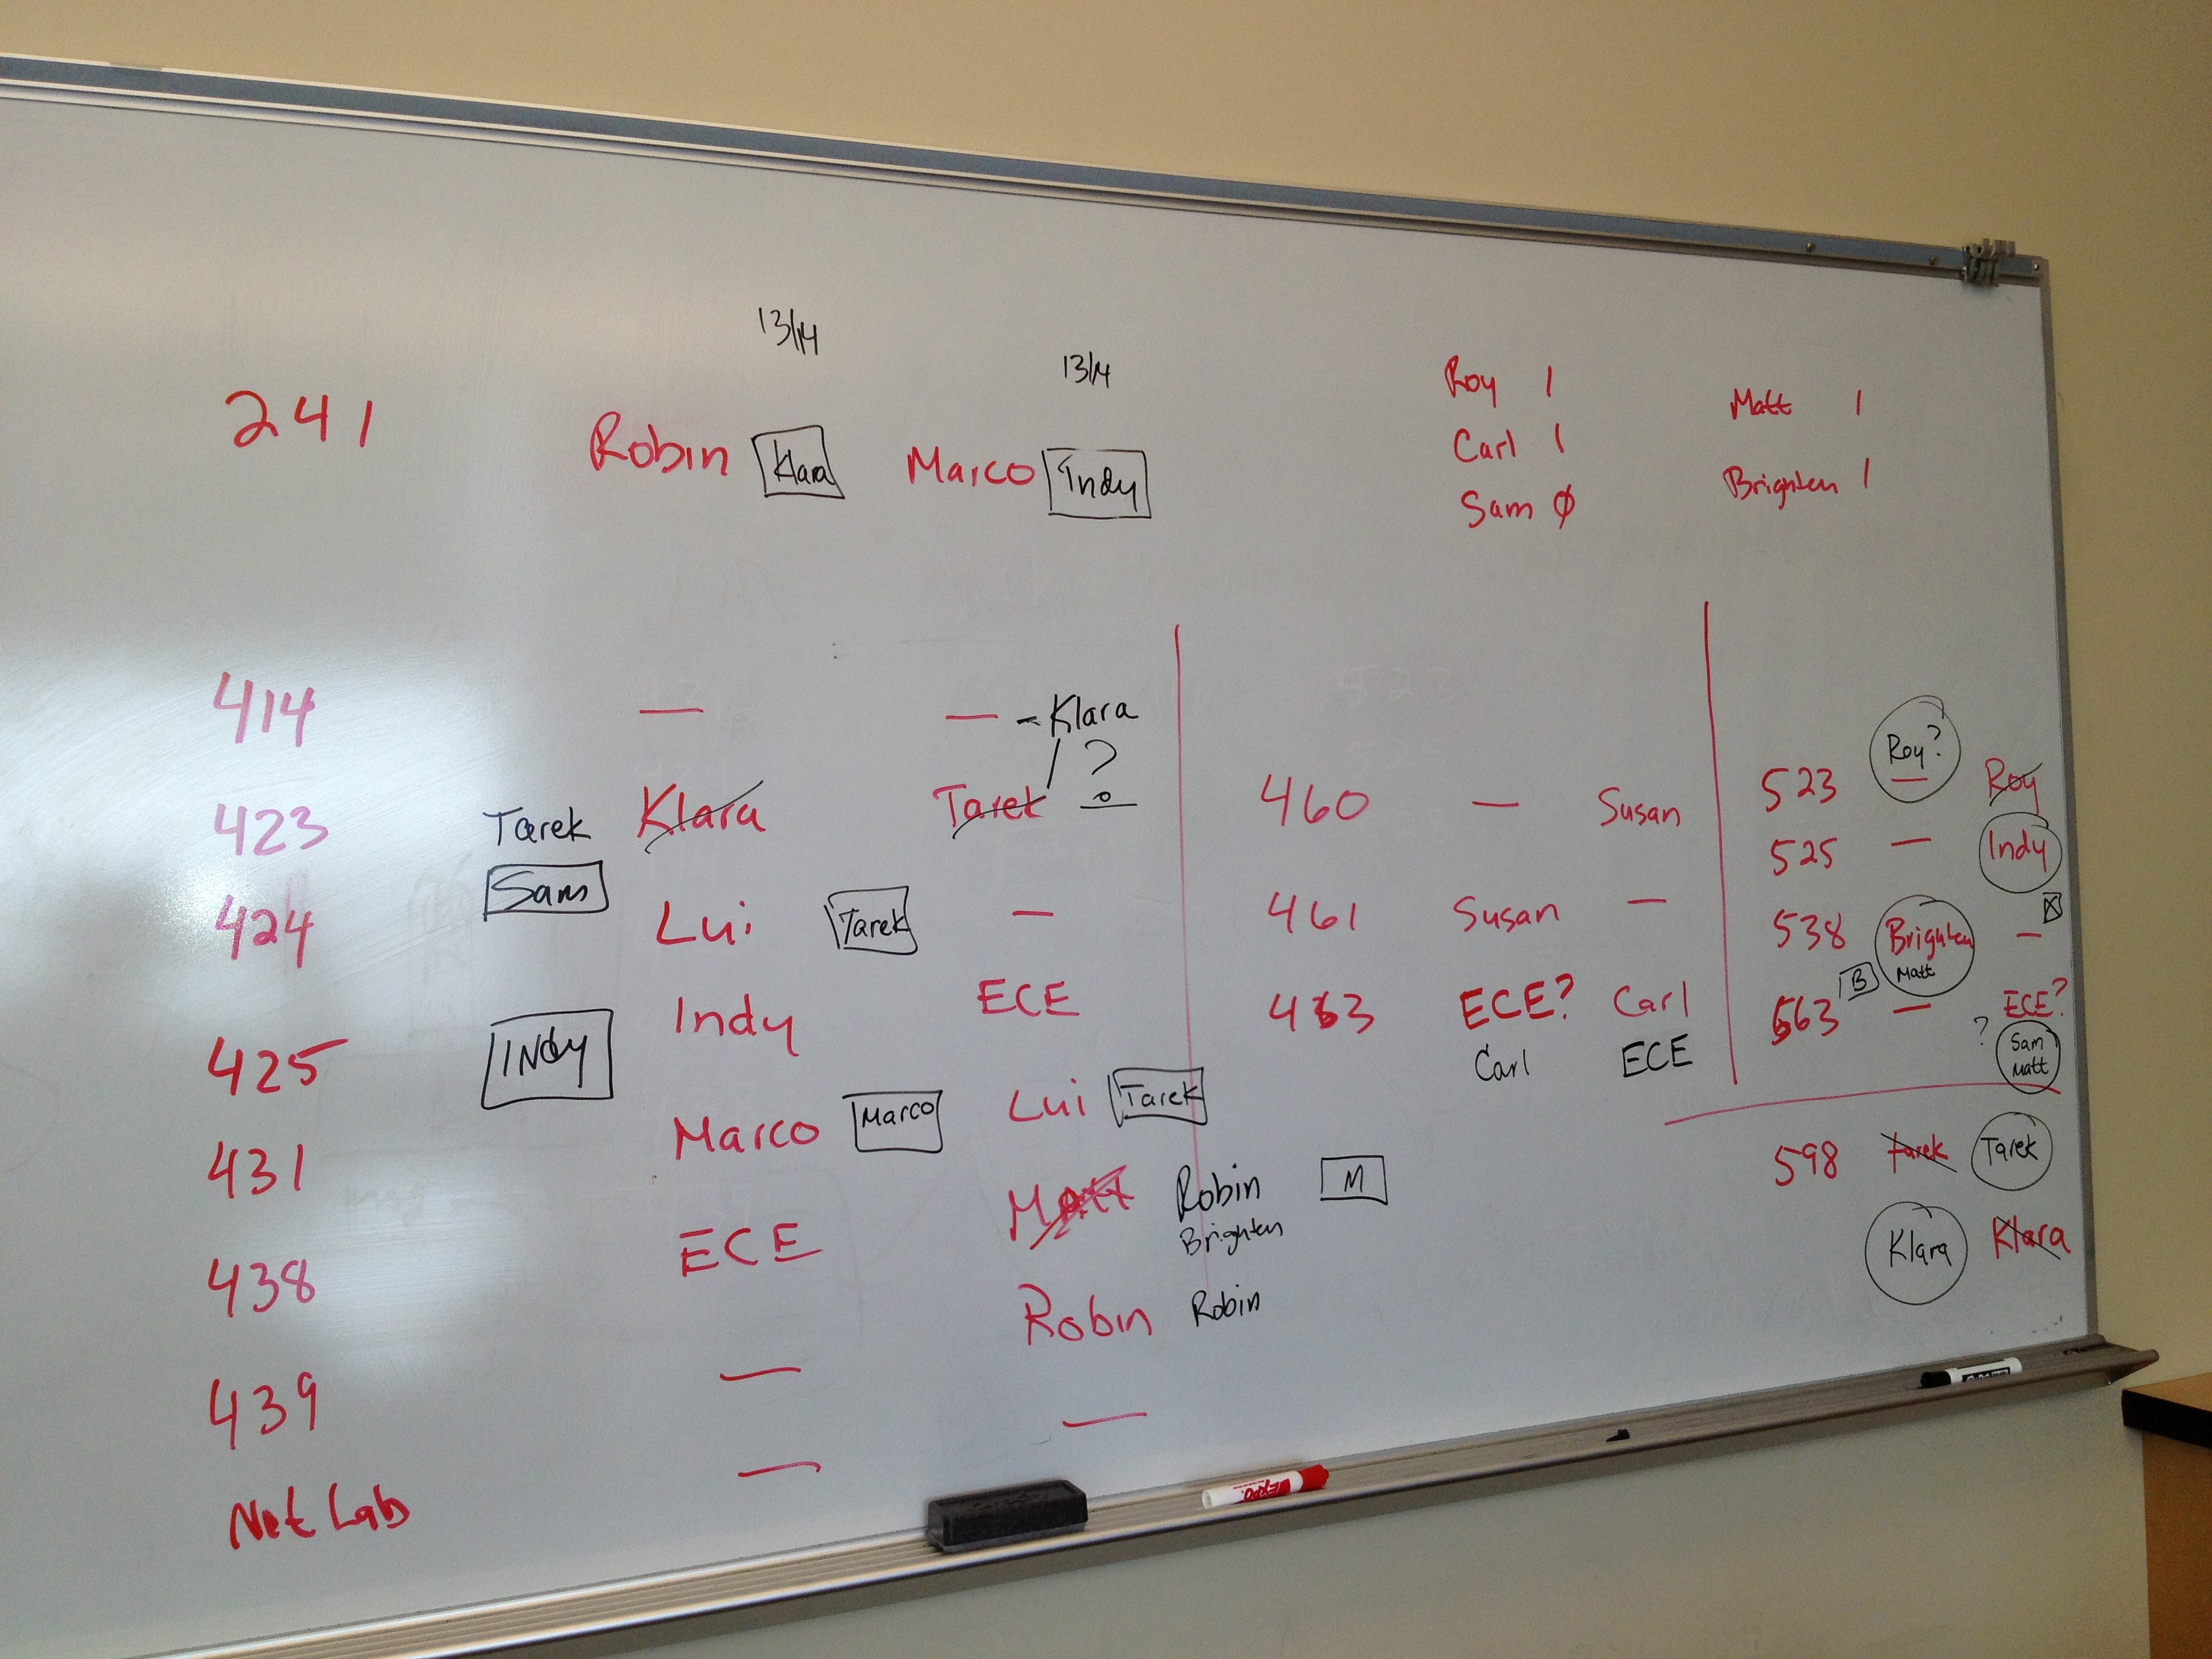 13/14
13/14
241 Robin Klara Marco Indy
Roy 1
Carl 1
Sam Ø
Matt 1
Brighten 1
414 — — - Klara
423 Tarek Klara Tarek ?
Sam
424 Lui Tarek —
425 INdy Indy ECE
431 Marco Marco Lui Tarek
438 ECE Matt Robin M
Brighten
439 — Robin Robin
Net Lab — —
460 — Susan
461 Susan —
463 ECE? Carl
Carl ECE
523 Roy? — Roy
525 — Indy
538 Brighten —
Matt
563 B — ECE?
? Sam
Matt
598 Tarek Tarek
Klara Klara
EXPO